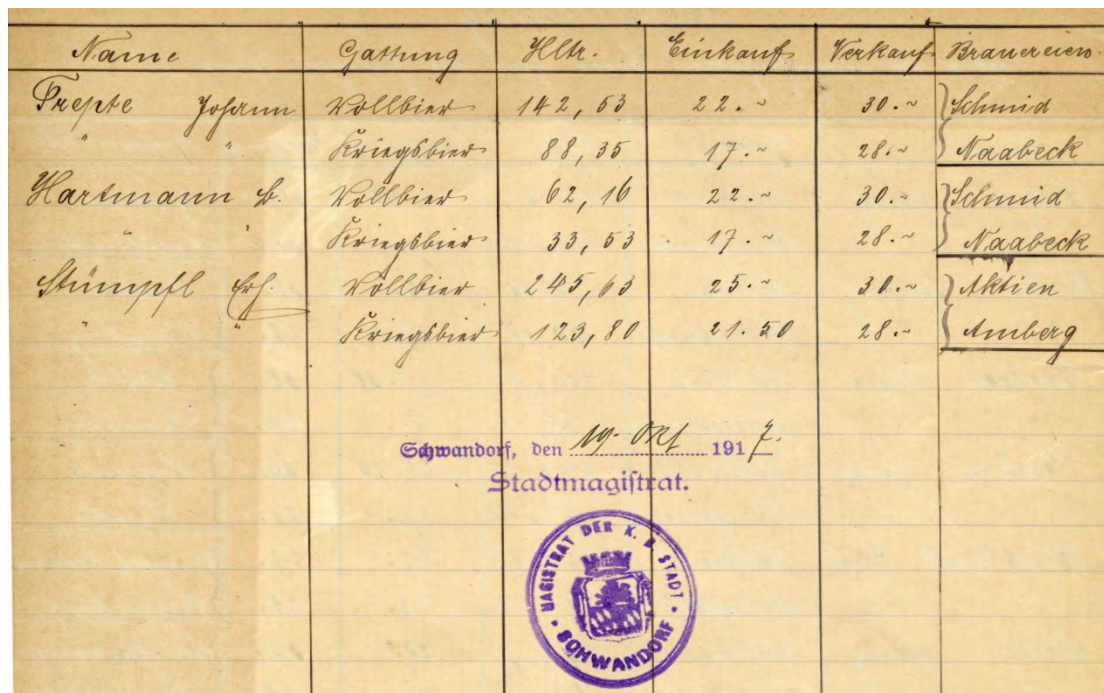 Name Gattung Hltr. Einkauf Verkauf Brauereien.
Trepte Johann Vollbier 142,53 22.- 30.- Schmid
" " Kriegsbier 88,35 17.- 28.- Naabeck
Hartmann B. Vollbier 62,16 22.- 30.- Schmid
" " Kriegsbier 33,53 17.- 28.- Naabeck
Stümpfl Erh. Vollbier 245,63 25.- 30.- Aktien
" " Kriegsbier 123,80 21.50 28.- Amberg
Schwandorf, den 19. Okt 1917.
Stadtmagistrat.
MAGISTRAT DER K. B. STADT
SCHWANDORF